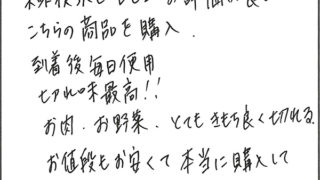 こちらの商品を購入.
到着後毎日使用
切れ味最高!!
お肉.お野菜.とてもきもち良く切れる
お値段もお安くて本当に購入して